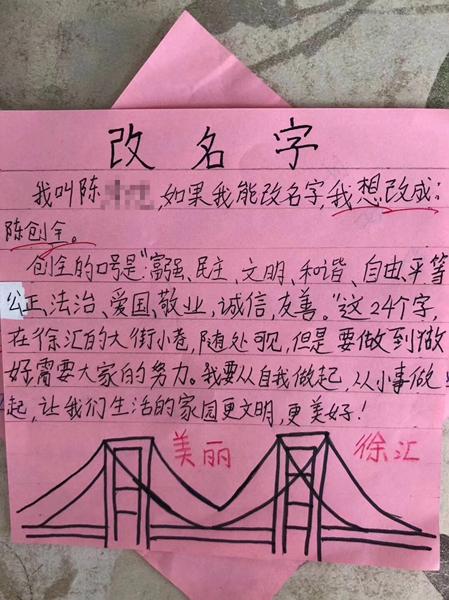 改名字
我叫陈,如果我能改名字,我想改成:
陈创全。
创全的口号是:"富强、民主、文明、和谐、自由、平等
公正、法治、爱国、敬业、诚信、友善。"这24个字,
在徐汇的大街小巷,随处可见,但是要做到做
好需要大家的努力。我要从自我做起,从小事做
起,让我们生活的家园更文明,更美好!
美丽 徐汇